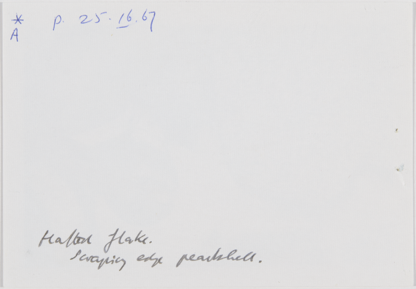 *
A
p. 25.16.67
Hafted flake.
Scraping edge pearlshell.